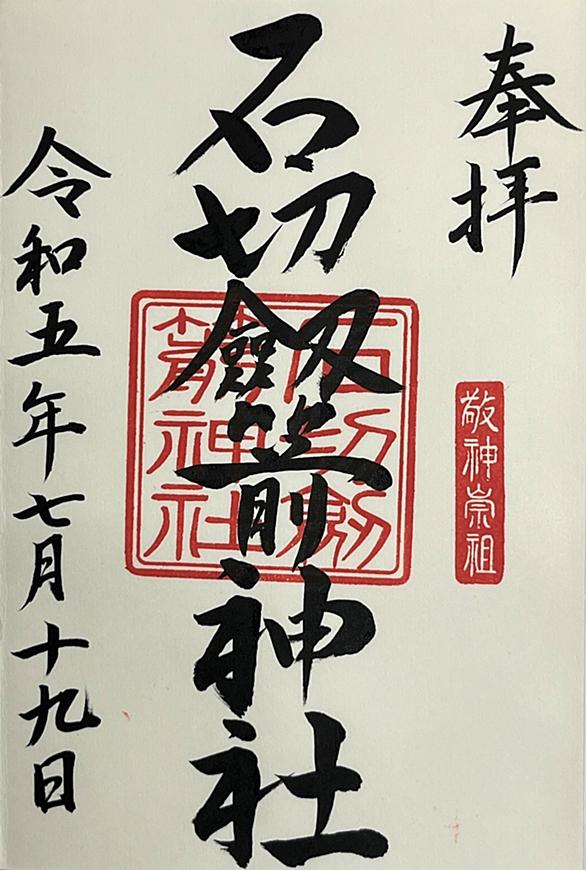 奉拝
敬神崇祖
石切劔箭神社
石切劔箭神社
令和五年七月十九日